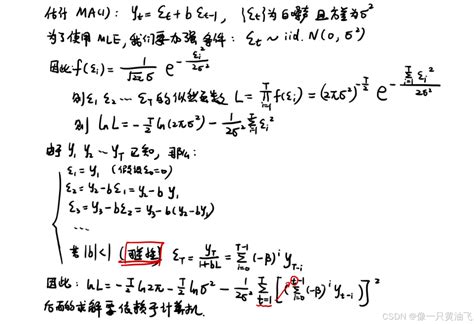 估计 MA(1): yₜ = εₜ + b εₜ₋₁, {εₜ}为白噪声 且方差为σ²
为了使用MLE,我们要加强条件: εₜ ~ iid. N(0, σ²)
因此 f(εᵢ) = 1/(√2π σ) e^(-εᵢ²/2σ²)
则 ε₁ ε₂ … ε_T 的似然函数 L = ∏_{i=1}^{T} f(εᵢ) = (2πσ²)^(-T/2) e^(-Σ_{i=1}^{T} εᵢ²/2σ²)
则 ln L = -T/2 ln(2πσ²) - 1/2σ² Σ_{i=1}^{T} εᵢ²
由于 y₁ y₂ … y_T 已知, 那么:
ε₁ = y₁ (假设ε₀=0)
ε₂ = y₂ - bε₁ = y₂ - b y₁
ε₃ = y₃ - bε₂ = y₃ - b(y₂ - by₁)
…
若 |b|<1 (可逆性) ε_T = y_T/(1+bL) = Σ_{i=0}^{T-1} (-β)ⁱ y_{T-i}
因此: ln L = -T/2 ln2π - T/2 lnσ² - 1/2σ² Σ_{t=1}^{T} [(Σ_{i=0}^{t-1} (-β)ⁱ y_{t-i})]²
后面的求解要依赖于计算机.
CSDN @像一只黄油飞